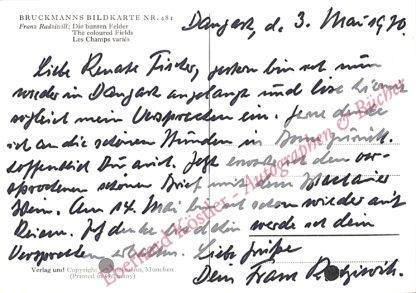 BRUCKMANNS BILDKARTE NR. 481
Franz Radziwill: Die bunten Felder
The coloured Fields
Les Champs variés
Dangast, d. 3. Mai 1970
Liebe Renate Fischer, gestern bin ich nun
wieder in Dangast angelangt und löse hiermit
sogleich mein Versprechen ein. Gerne denke
ich an die schönen Stunden in zurück.
Hoffentlich Du auch. Jetzt erwarte ich den ver-
sprochenen schönen Brief mit dem
Wein. Am 14. Mai bin ich schon wieder auf
Reisen. Ich denke und werde ich dein
Versprechen erhalten. Liebe Grüße
Dein Franz Radziwill.
Verlag und Copyright Bruckmann, München
(Printed in Germany)
Eberhard Köstler Autographen & Bücher